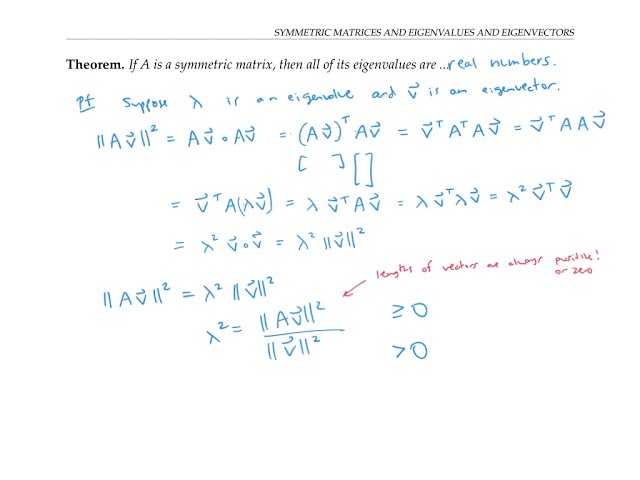 SYMMETRIC MATRICES AND EIGENVALUES AND EIGENVECTORS
Theorem. If A is a symmetric matrix, then all of its eigenvalues are ...real numbers.
Pf Suppose λ is an eigenvalue and v⃗ is an eigenvector.
||Av⃗||² = Av⃗ ∘ Av⃗ = (Av⃗)ᵀ Av⃗ = v⃗ᵀAᵀAv⃗ = v⃗ᵀAAv⃗
[ ] [ ]
= v⃗ᵀA(λv⃗) = λ v⃗ᵀAv⃗ = λv⃗ᵀλv⃗ = λ² v⃗ᵀv⃗
= λ² v⃗∘v⃗ = λ² ||v⃗||²
lengths of vectors are always positive!
or zero
||Av⃗||² = λ² ||v⃗||²
λ² = ||Av⃗||² / ||v⃗||²
≥ 0
> 0